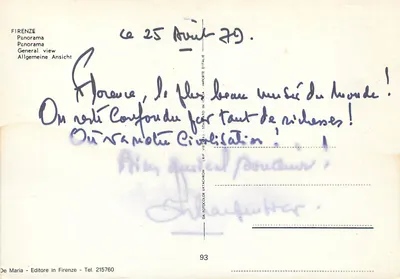 FIRENZE
Panorama
Panorama
General view
Allgemeine Ansicht
Le 25 Août 79.
Florence, le plus beau musée du Monde !
On reste confondu par tant de richesses !
Où va notre Civilisation !
Bien amical souvenir !
93
De Maria - Editore in Firenze - Tel. 215760